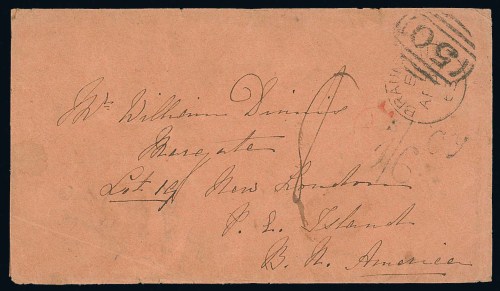 50
Mr William Dinnis
Margate
Lot 19 New London
P. E. Island
B. N. America
6